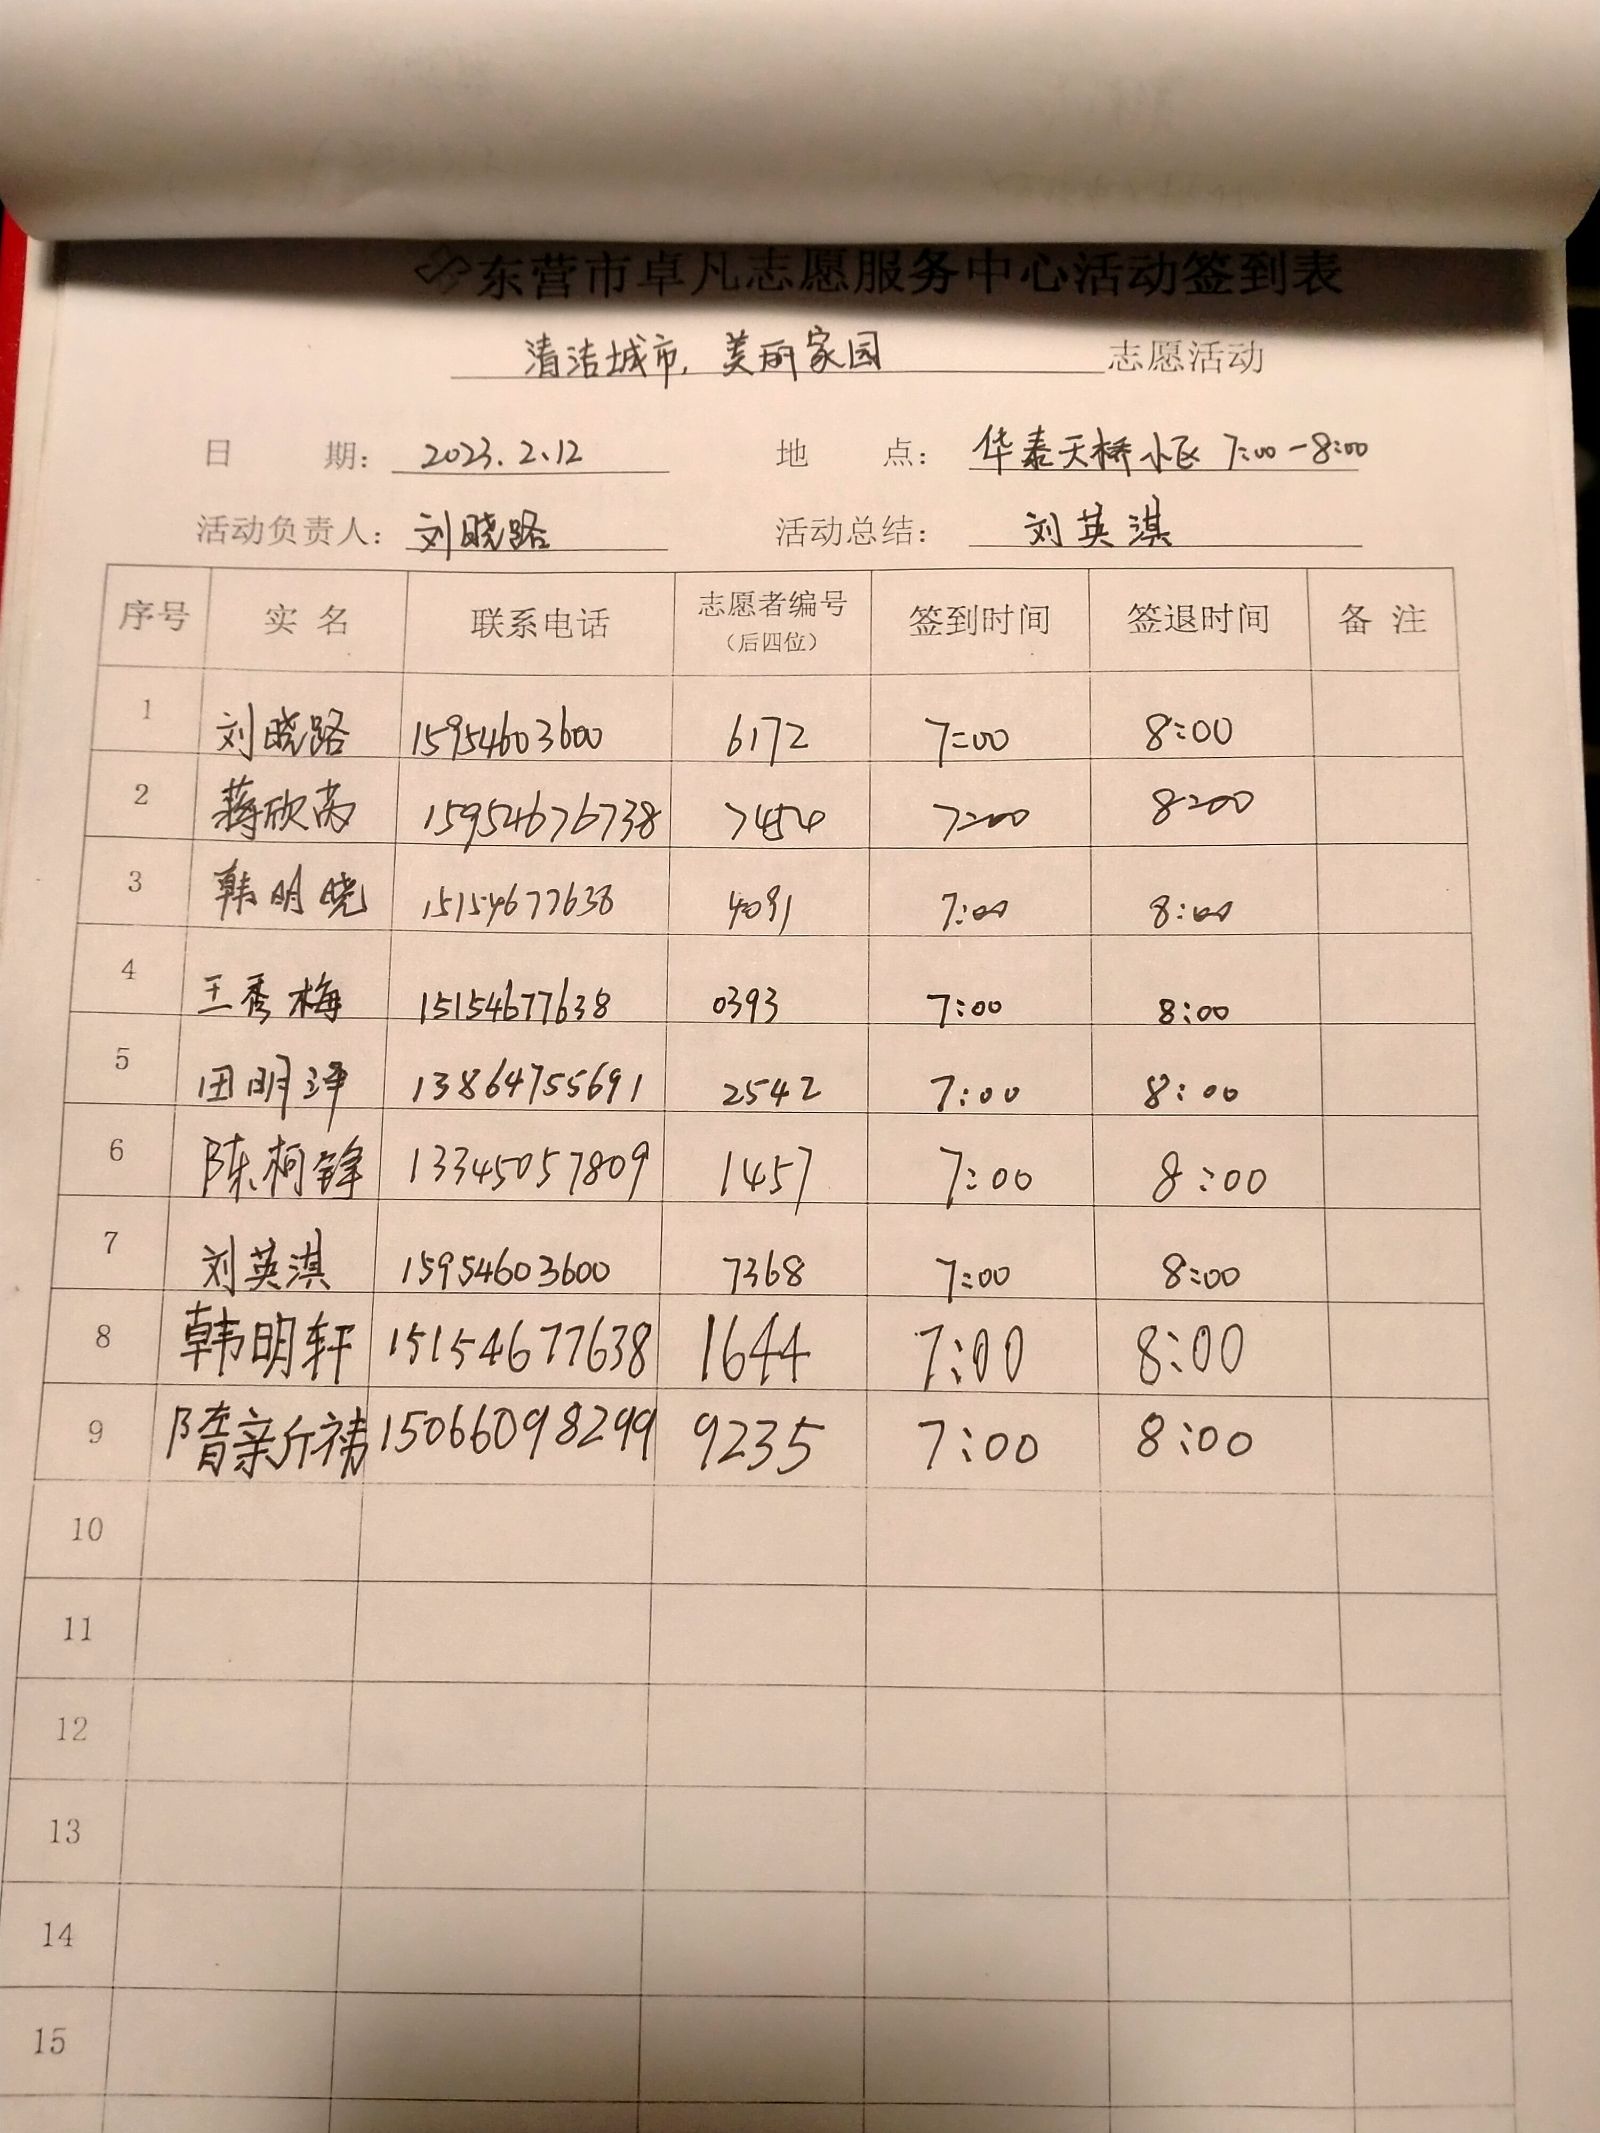 东营市卓凡志愿服务中心活动签到表
清洁城市，美丽家园 志愿活动
日 期： 2023.2.12 地 点： 华泰天桥小区 7:00-8:00
活动负责人： 刘晓路 活动总结： 刘英淇
序号 实 名 联系电话 志愿者编号 签到时间 签退时间 备 注
（后四位）
1 刘晓路 15954603600 6172 7:00 8:00
2 蒋欣芮 15954676738 7454 7:00 8:00
3 韩明晓 15154677638 4091 7:00 8:00
4 王秀梅 15154677638 0393 7:00 8:00
5 田明泽 13864755691 2542 7:00 8:00
6 陈柯锋 13345057809 1457 7:00 8:00
7 刘英淇 15954603600 7368 7:00 8:00
8 韩明轩 15154677638 1644 7:00 8:00
9 隋新祎 15066098299 9235 7:00 8:00
10
11
12
13
14
15